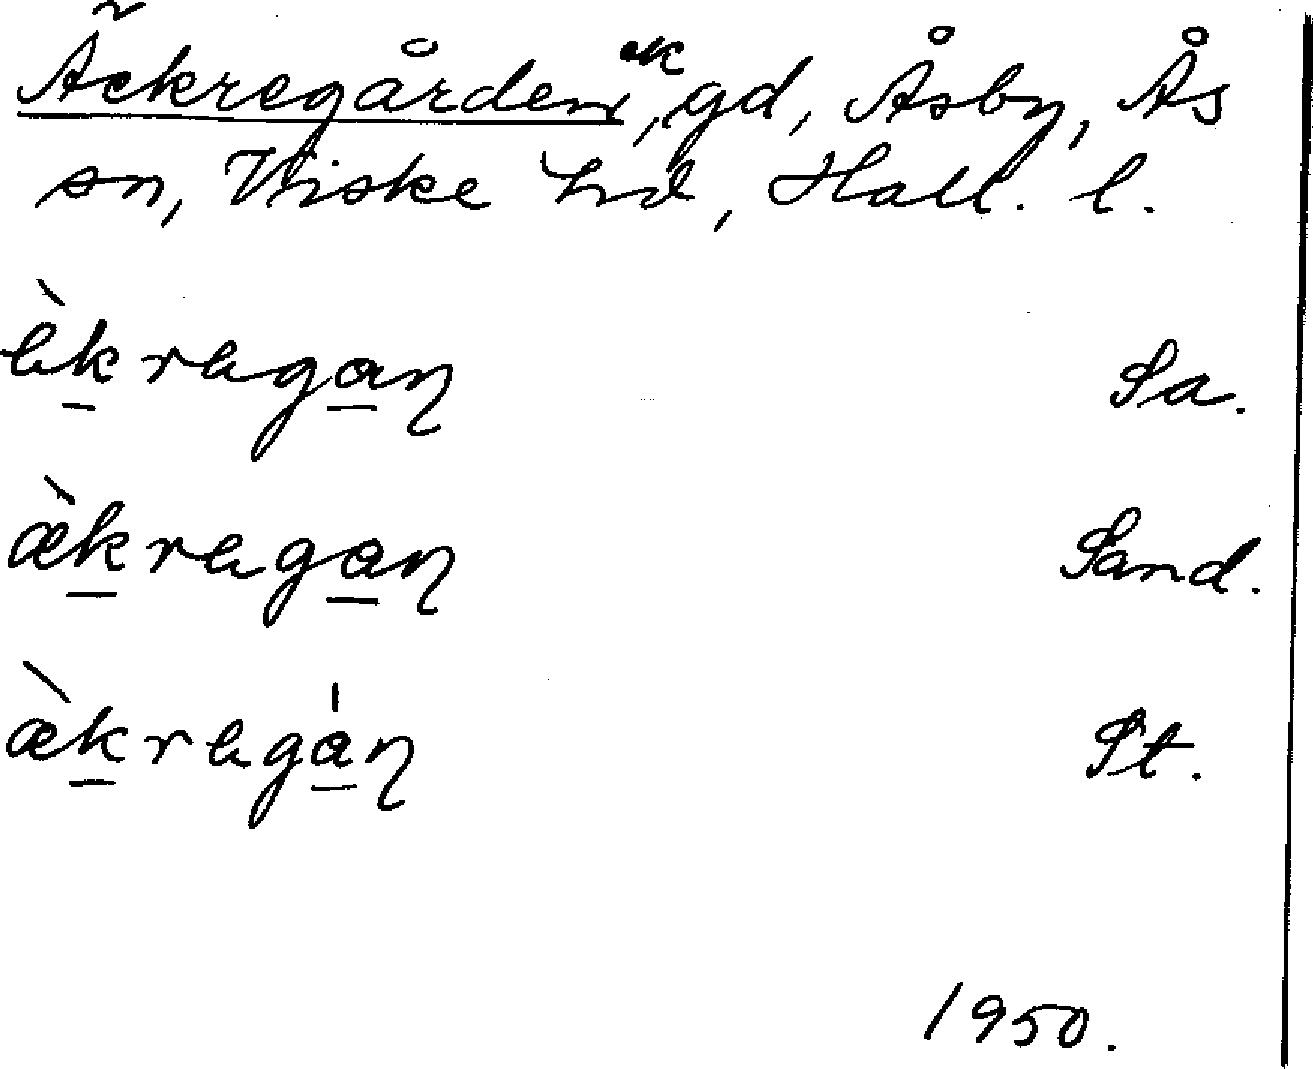 Äckregården, ek gd, Åsby, Ås
sn, Viske hd, Hall. l.
èkragaɳ Sa.
æ̀kragaɳ Sand.
æ̀kragáɳ St.
1950.